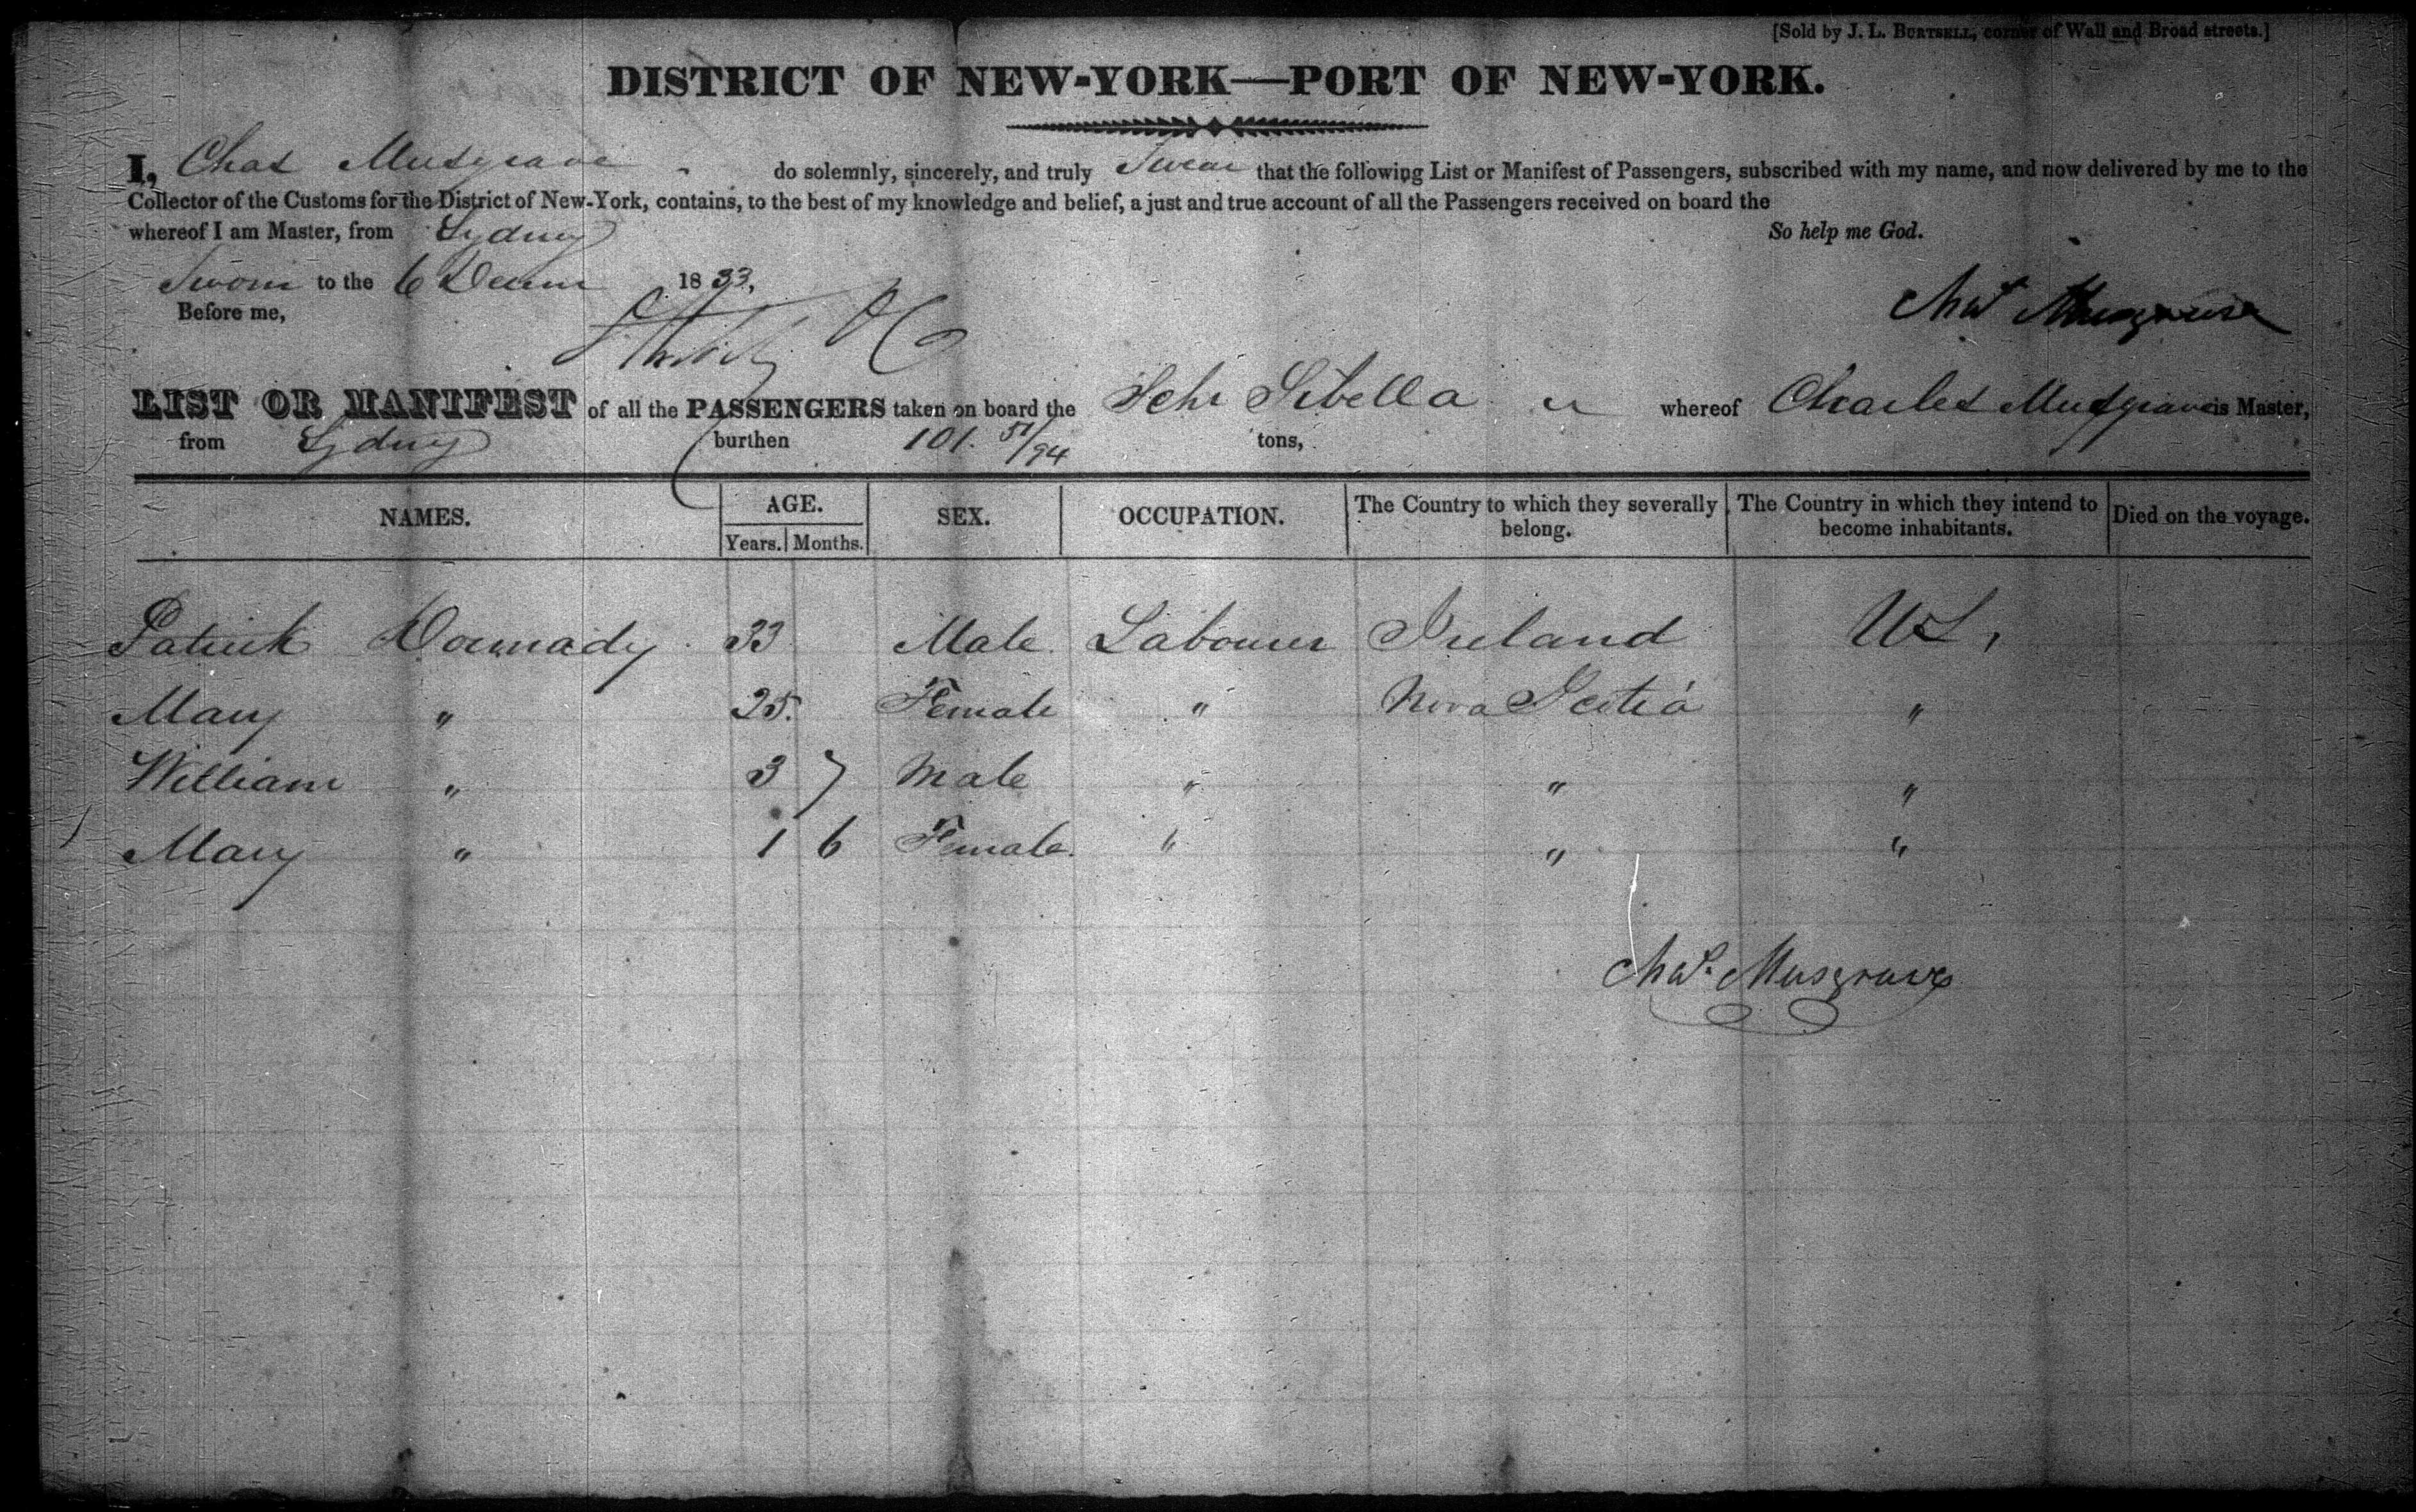 [Sold by J. L. BURTSELL, corner of Wall and Broad streets.]
DISTRICT OF NEW-YORK—PORT OF NEW-YORK.
I, Chas Musgrave do solemnly, sincerely, and truly Swear that the following List or Manifest of Passengers, subscribed with my name, and now delivered by me to the
Collector of the Customs for the District of New-York, contains, to the best of my knowledge and belief, a just and true account of all the Passengers received on board the
whereof I am Master, from Sydney So help me God.
Sworn to the 6 1833.
Before me,
Chas Musgrave
LIST OR MANIFEST of all the PASSENGERS taken on board the Schr Sibella whereof Charles Musgrave is Master,
from Sydney burthen 101. 51/94 tons,
NAMES. AGE. SEX. OCCUPATION. The Country to which they severally belong. The Country in which they intend to become inhabitants. Died on the voyage.
Years. Months.
Patrick Dormady 33 Male Labourer Ireland US,
Mary " 25. Female " Nova Scotia "
William " 3 7 Male " " "
Mary " 1 6 Female. " " "
Chas. Musgrave